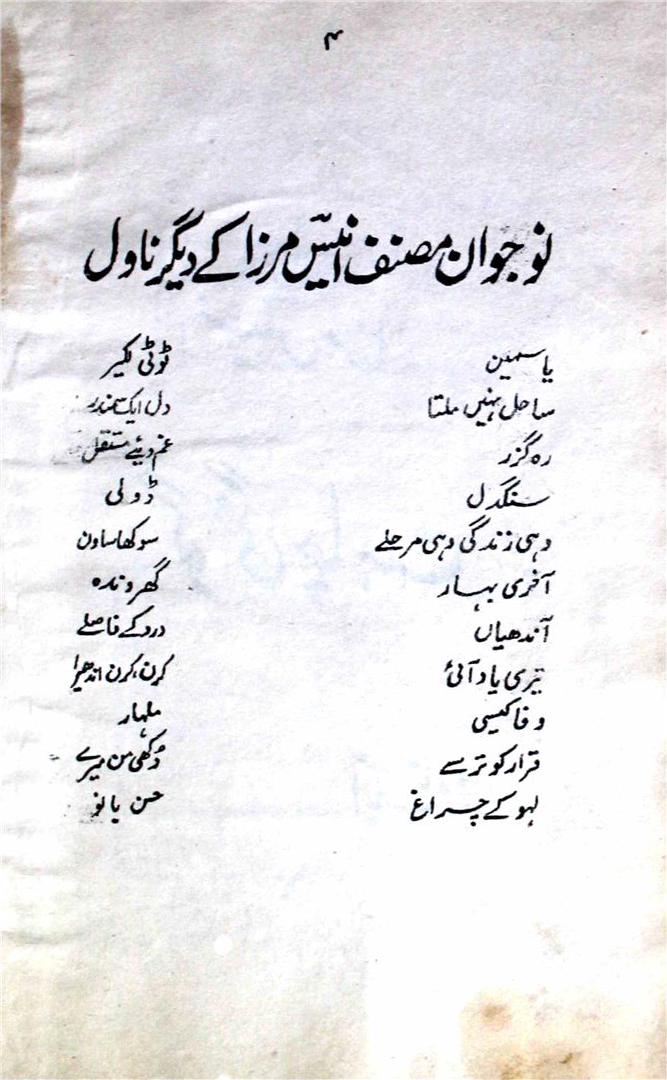 ۴
نوجوان مصنف انیسؔ مرزا کے دیگر ناول
یاسمین
ساحل نہیں ملتا
رہ گزر
سنگدل
وہی زندگی وہی مرحلے
آخری بہار
آندھیاں
تیری یاد آئی
وفا کیسی
قرار کو ترسے
لہو کے چراغ
ٹوٹی لکیر
دل ایک سمندر
غم دیئے مستقل
ڈولی
سوکھا ساون
گھروندہ
درد کے فاصلے
کرن، کرن اندھیرا
ملہار
دُکھی من میرے
حسن بانو